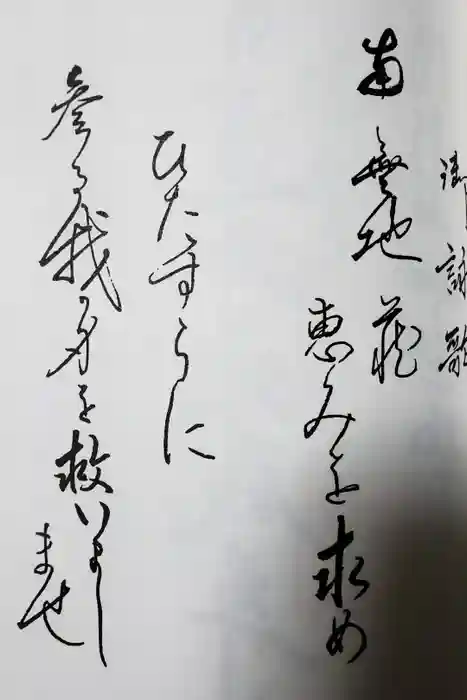 御詠歌
南無地蔵
恵みを求め
ひたすらに
参る我が身を救いまし
ませ